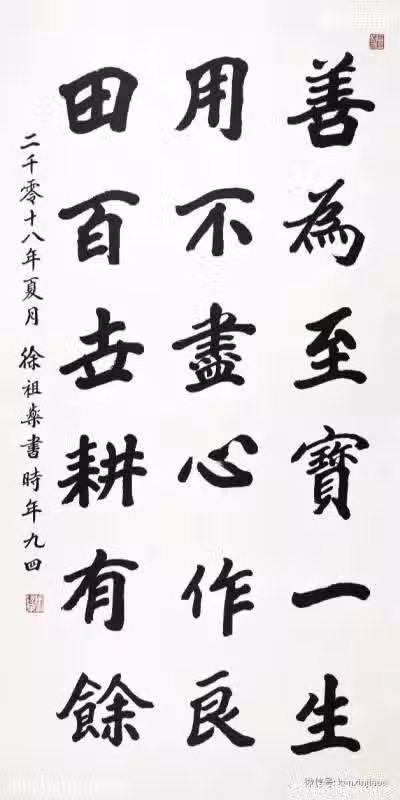 善為至寶一生
用不盡心作良
田百世耕有餘
二千零十八年夏月 徐祖燊書時年九四